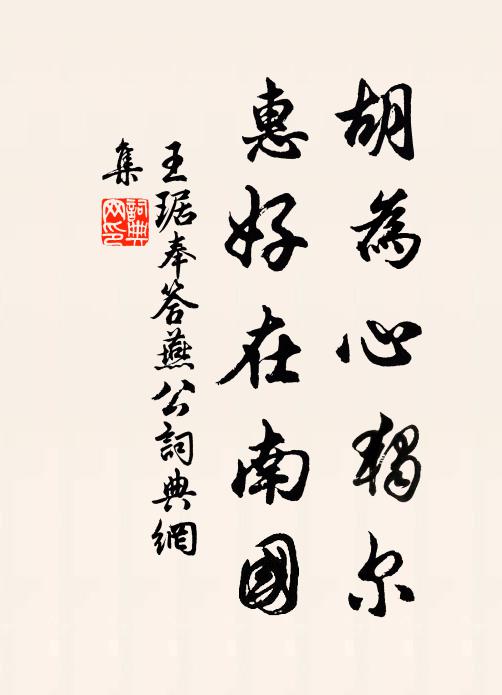 胡為心獨尔
惠好在南國
王琚奉答燕公詞典網
集
詞典網印